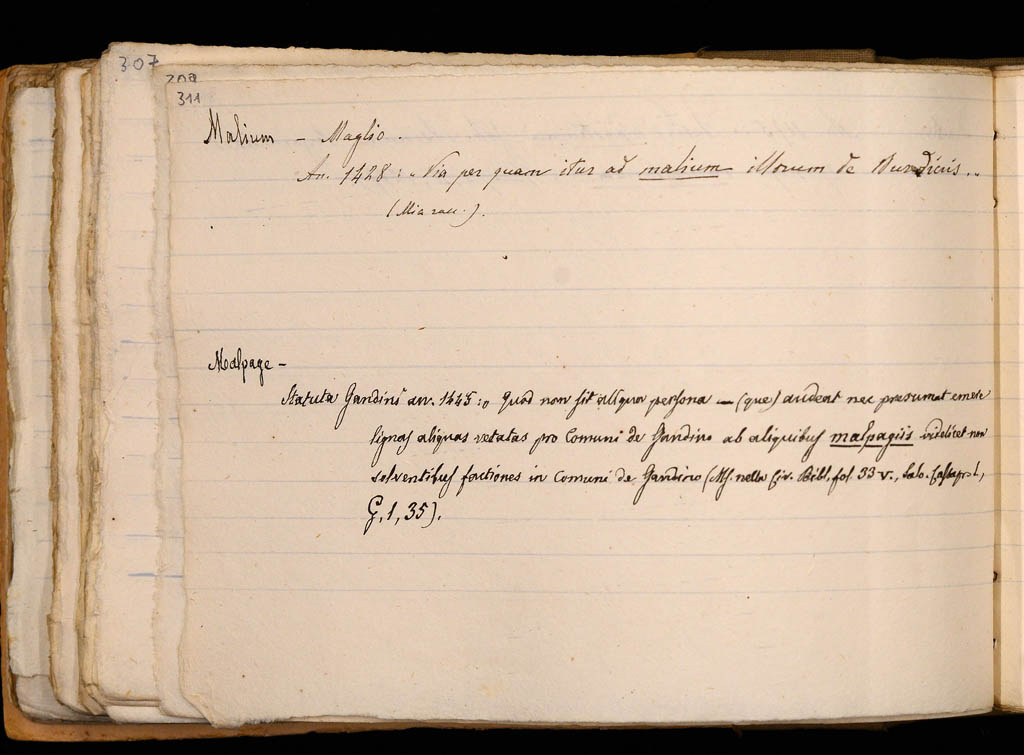 307
309
311
Malium — Maglio.
An. 1428: "Via per quam itur ad malium illorum de
(Mia racc.).
Malpage —
Statuta Gandini an. 1445: Quod non sit aliqua persona — (que) audeat nec presumat emere
lignas aliquas vetatas pro Comuni de Gandino ab aliquibus malpagiis videlicet non
solventibus factiones in Comuni de Gandino (Ms. nella Civ. Bibl., fol. 33 v., Sab.
G, 1, 35).